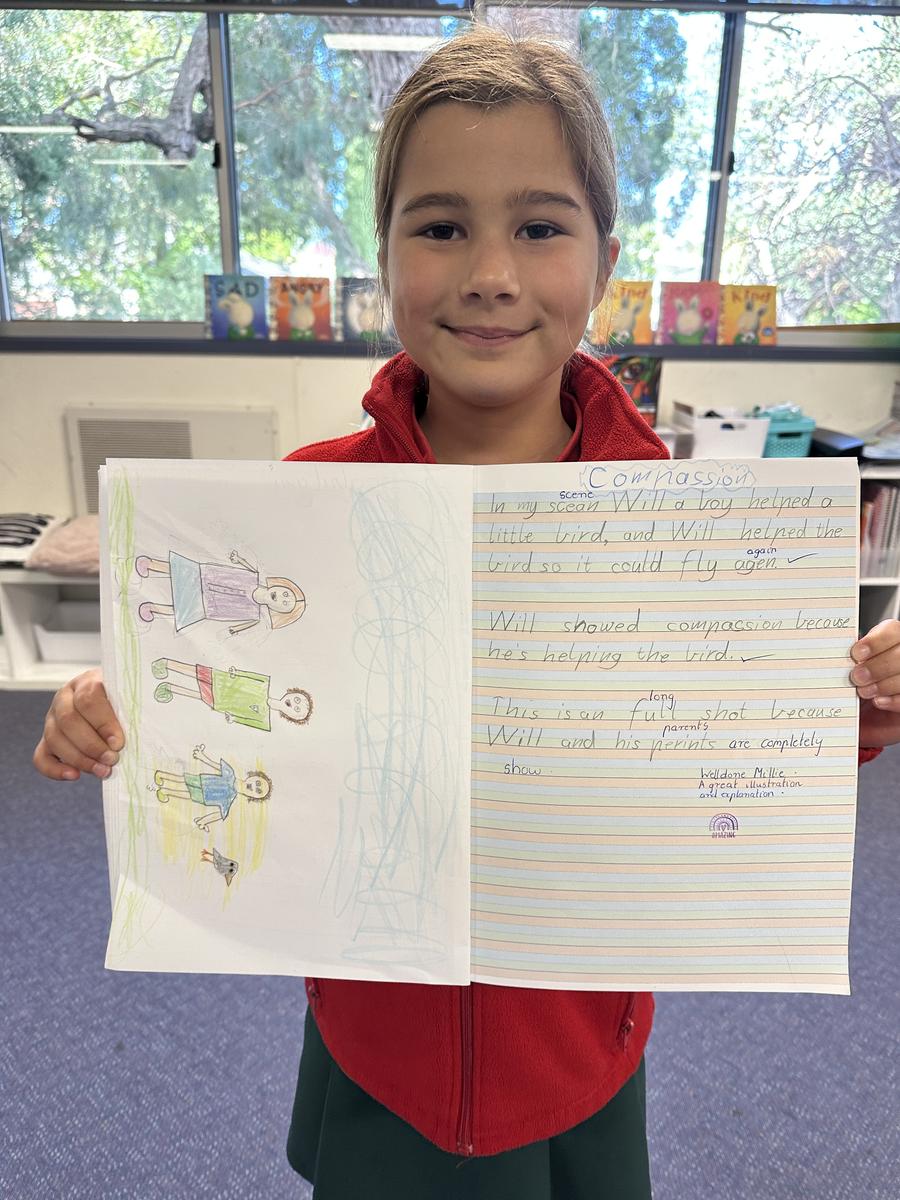 SAD
ANGRY
Kind
Kind
Compassion
scene
In my scean Will a boy helped a
little bird, and Will helped the
again
bird so it could fly agen.
Will showed compassion because
he's helping the bird.
long
This is an full shot because
parents
Will and his perints are completely
show.
Welldone Millie.
A great illustration
and explanation.
AMAZING